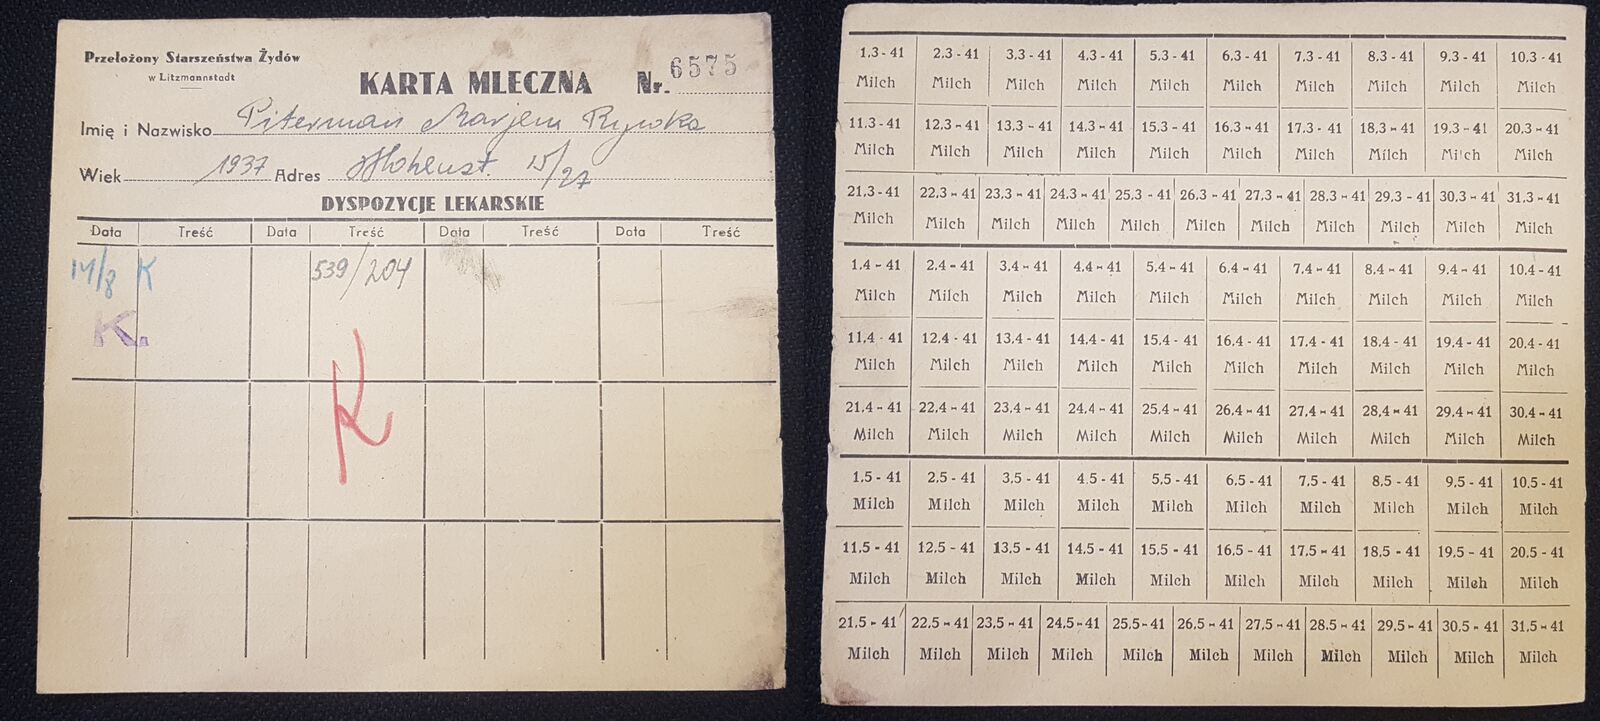 Przełożony Starszeństwa Żydów
w Litzmannstadt
KARTA MLECZNA Nr. 6575
Imię i Nazwisko Piterman Marjem Rywka
Wiek 1937 Adres Hohenst. 15/27
DYSPOZYCJE LEKARSKIE
Data Treść Data Treść Data Treść Data Treść
14/8 K 539/204
K.
K
1.3 - 41 2.3 - 41 3.3 - 41 4.3 - 41 5.3 - 41 6.3 - 41 7.3 - 41 8.3 - 41 9.3 - 41 10.3 - 41
Milch Milch Milch Milch Milch Milch Milch Milch Milch Milch
11.3 - 41 12.3 - 41 13.3 - 41 14.3 - 41 15.3 - 41 16.3 - 41 17.3 - 41 18.3 - 41 19.3 - 41 20.3 - 41
Milch Milch Milch Milch Milch Milch Milch Milch Milch Milch
21.3 - 41 22.3 - 41 23.3 - 41 24.3 - 41 25.3 - 41 26.3 - 41 27.3 - 41 28.3 - 41 29.3 - 41 30.3 - 41 31.3 - 41
Milch Milch Milch Milch Milch Milch Milch Milch Milch Milch Milch
1.4 - 41 2.4 - 41 3.4 - 41 4.4 - 41 5.4 - 41 6.4 - 41 7.4 - 41 8.4 - 41 9.4 - 41 10.4 - 41
Milch Milch Milch Milch Milch Milch Milch Milch Milch Milch
11.4 - 41 12.4 - 41 13.4 - 41 14.4 - 41 15.4 - 41 16.4 - 41 17.4 - 41 18.4 - 41 19.4 - 41 20.4 - 41
Milch Milch Milch Milch Milch Milch Milch Milch Milch Milch
21.4 - 41 22.4 - 41 23.4 - 41 24.4 - 41 25.4 - 41 26.4 - 41 27.4 - 41 28.4 - 41 29.4 - 41 30.4 - 41
Milch Milch Milch Milch Milch Milch Milch Milch Milch Milch
1.5 - 41 2.5 - 41 3.5 - 41 4.5 - 41 5.5 - 41 6.5 - 41 7.5 - 41 8.5 - 41 9.5 - 41 10.5 - 41
Milch Milch Milch Milch Milch Milch Milch Milch Milch Milch
11.5 - 41 12.5 - 41 13.5 - 41 14.5 - 41 15.5 - 41 16.5 - 41 17.5 - 41 18.5 - 41 19.5 - 41 20.5 - 41
Milch Milch Milch Milch Milch Milch Milch Milch Milch Milch
21.5 - 41 22.5 - 41 23.5 - 41 24.5 - 41 25.5 - 41 26.5 - 41 27.5 - 41 28.5 - 41 29.5 - 41 30.5 - 41 31.5 - 41
Milch Milch Milch Milch Milch Milch Milch Milch Milch Milch Milch